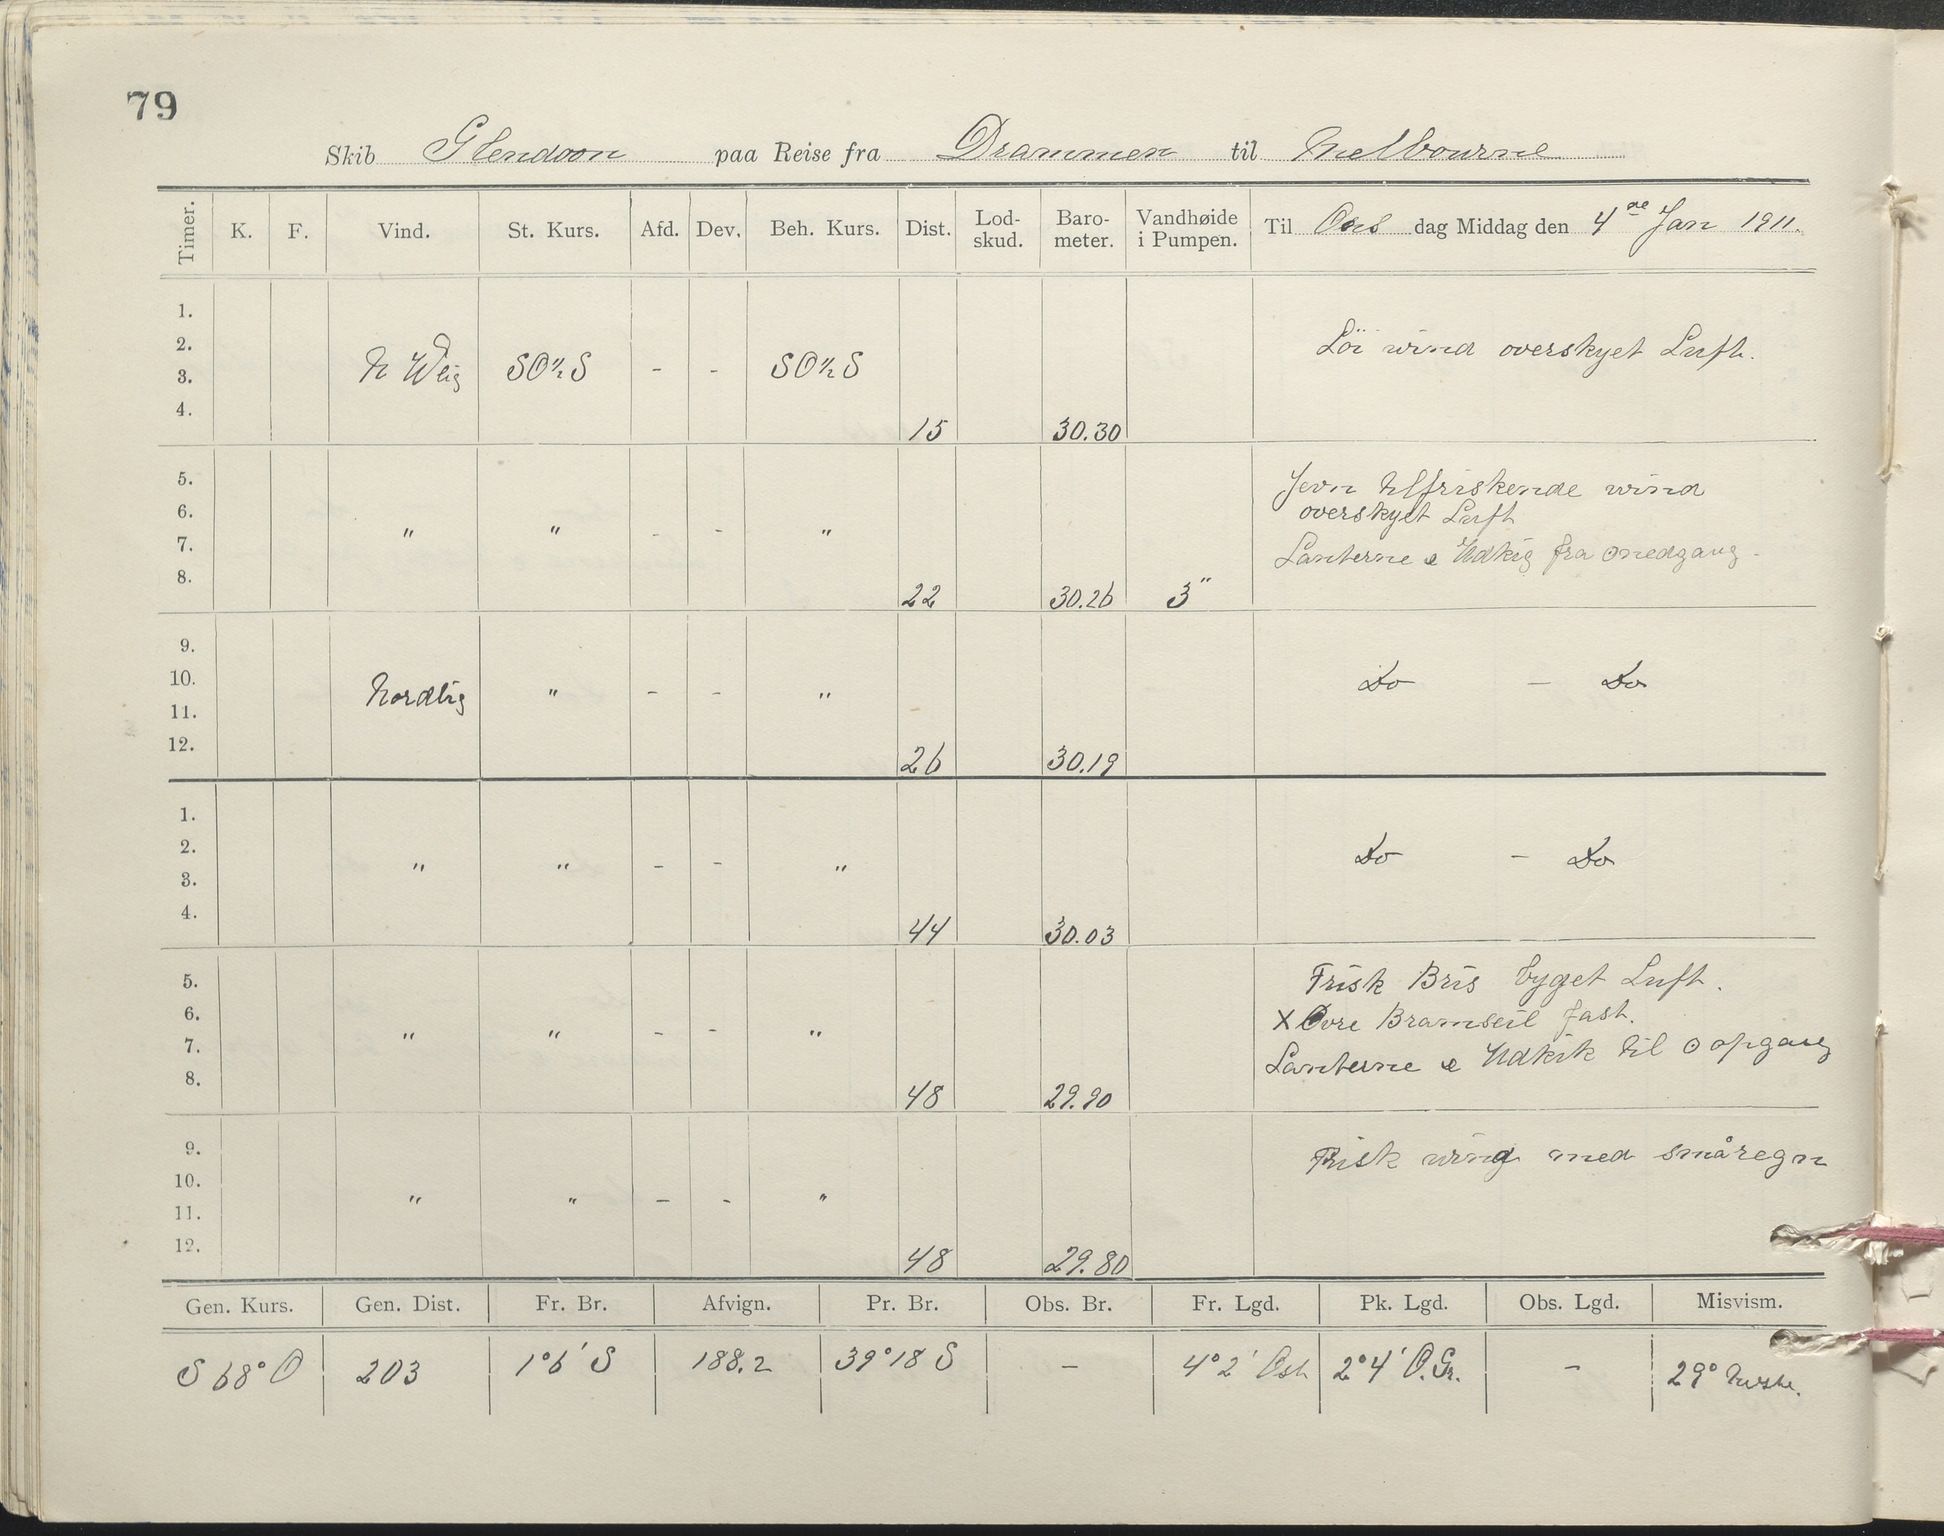 79
Skib Glendoon paa Reise fra Drammen til Melbourne
Timer. K. F. Vind. St. Kurs. Afd. Dev. Beh. Kurs. Dist. Lod-skud. Baro-meter. Vandhøide i Pumpen. Til Ons dag Middag den 4 de Jan 1911.
1.
2. Löi wind overskyet Luft.
3. N Wlig SO½S - - SO½S
4. 15 30.30
5. Jevn tilfriskende wind
6. overskyet Luft
7. " " - - " Lanterne & Udkig fra ⊙nedgang -
8. 22 30.26 3"
9.
10. Nordlig " - - " Do - Do
11.
12. 26 30.19
1.
2. Do - Do
3. " " - - "
4. 44 30.03
5. Frisk Bris byget Luft.
6. X Øvre Bramseil fast.
7. " " - - " Lanterne & Udkik til ⊙opgang
8. 48 29.90
9. Frisk wind med småregn
10.
11. " " - - "
12. 48 29.80
Gen. Kurs. Gen. Dist. Fr. Br. Afvign. Pr. Br. Obs. Br. Fr. Lgd. Pk. Lgd. Obs. Lgd. Misvism.
S 68° O 203 1°6' S 188.2 39°18 S - 4°2' Ost 2°4' O.Gr. - 29°